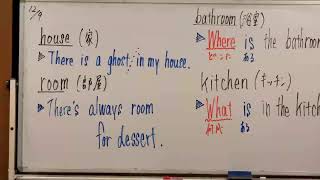 12/9
house (家)
There is a ghost in my house.
room (部屋)
There's always room
for dessert.
bathroom (浴室)
Where is the bathroom
どこに ある
kitchen (キッチン)
What is in the kitch
何が ある